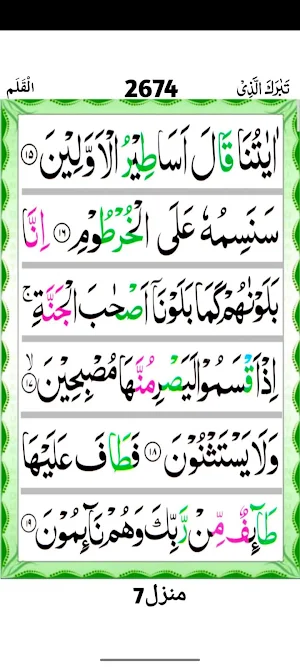 تَبٰرَكَ الَّذِىْ 2674 الْقَلَم
اٰيٰتُنَا قَالَ اَسَاطِيْرُ الْاَوَّلِيْنَ ۝۱۵
سَنَسِمُهٗ عَلَى الْخُرْطُوْمِ ۝۱۶ اِنَّا
بَلَوْنٰهُمْ كَمَا بَلَوْنَاۤ اَصْحٰبَ الْجَنَّةِ ۚ
اِذْ اَقْسَمُوْا لَيَصْرِمُنَّهَا مُصْبِحِيْنَ ۙ۝۱۷
وَلَا يَسْتَثْنُوْنَ ۝۱۸ فَطَافَ عَلَيْهَا
طَاۤئِفٌ مِّنْ رَّبِّكَ وَهُمْ نَاۤئِمُوْنَ ۝۱۹
منزل7